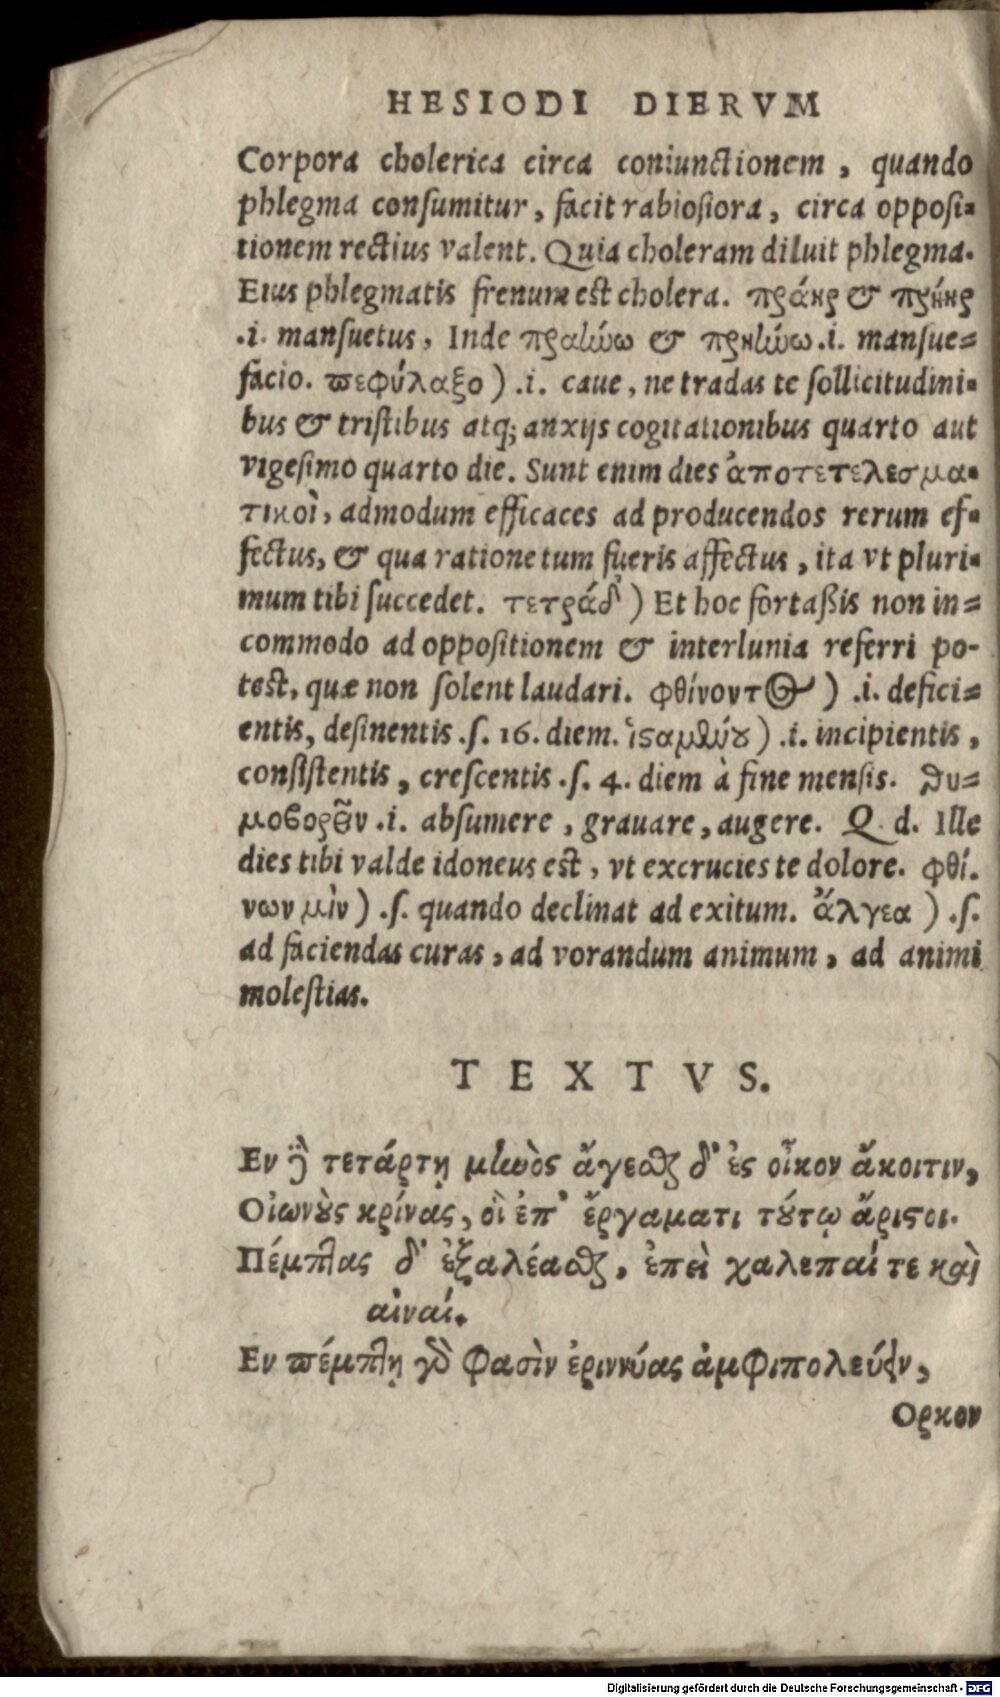 HESIODI DIERVM
Corpora cholerica circa coniunctionem, quando
phlegma consumitur, facit rabiosiora, circa opposi-
tionem rectius valent. Quia choleram diluit phlegma.
Eius phlegmatis frenum est cholera. πράϋς & πρήϋς
.i. mansuetus, Inde πραΰνω & πρηΰνω .i. mansue=
facio. πεφύλαξο) .i. caue, ne tradas te sollicitudini-
bus & tristibus atq; anxijs cogitationibus quarto aut
vigesimo quarto die. Sunt enim dies ἀποτετελεσμα-
τικοὶ, admodum efficaces ad producendos rerum ef-
fectus, & qua ratione tum fueris affectus, ita vt pluri-
mum tibi succedet. τετράδ') Et hoc fortaßis non in=
commodo ad oppositionem & interlunia referri po-
test, quæ non solent laudari. φθίνοντος) .i. defici=
entis, desinentis .s. 16. diem. ἱσαμένου) .i. incipientis,
consistentis, crescentis .s. 4. diem à fine mensis. θυ=
μοβορεῖν .i. absumere, grauare, augere. Q. d. Ille
dies tibi valde idoneus est, vt excrucies te dolore. φθί.
νων μὶν) .s. quando declinat ad exitum. ἄλγεα) .s.
ad faciendas curas, ad vorandum animum, ad animi
molestias.
TEXTVS.
Εν δὲ τετάρτῃ μηνὸς ἄγεσθαι δ' ἐς οἶκον ἄκοιτιν,
Οἰωνοὺς κρίνας, οἳ ἐπ' ἔργαματι τούτῳ ἄριστοι.
Πέμπτας δ' ἐξαλέασθαι, ἐπεὶ χαλεπαί τε καὶ
αἰναί.
Εν πέμπτῃ γὰρ φασὶν ἐριννύας ἀμφιπολεύειν,
Ορκον
Digitalisierung gefördert durch die Deutsche Forschungsgemeinschaft - DFG